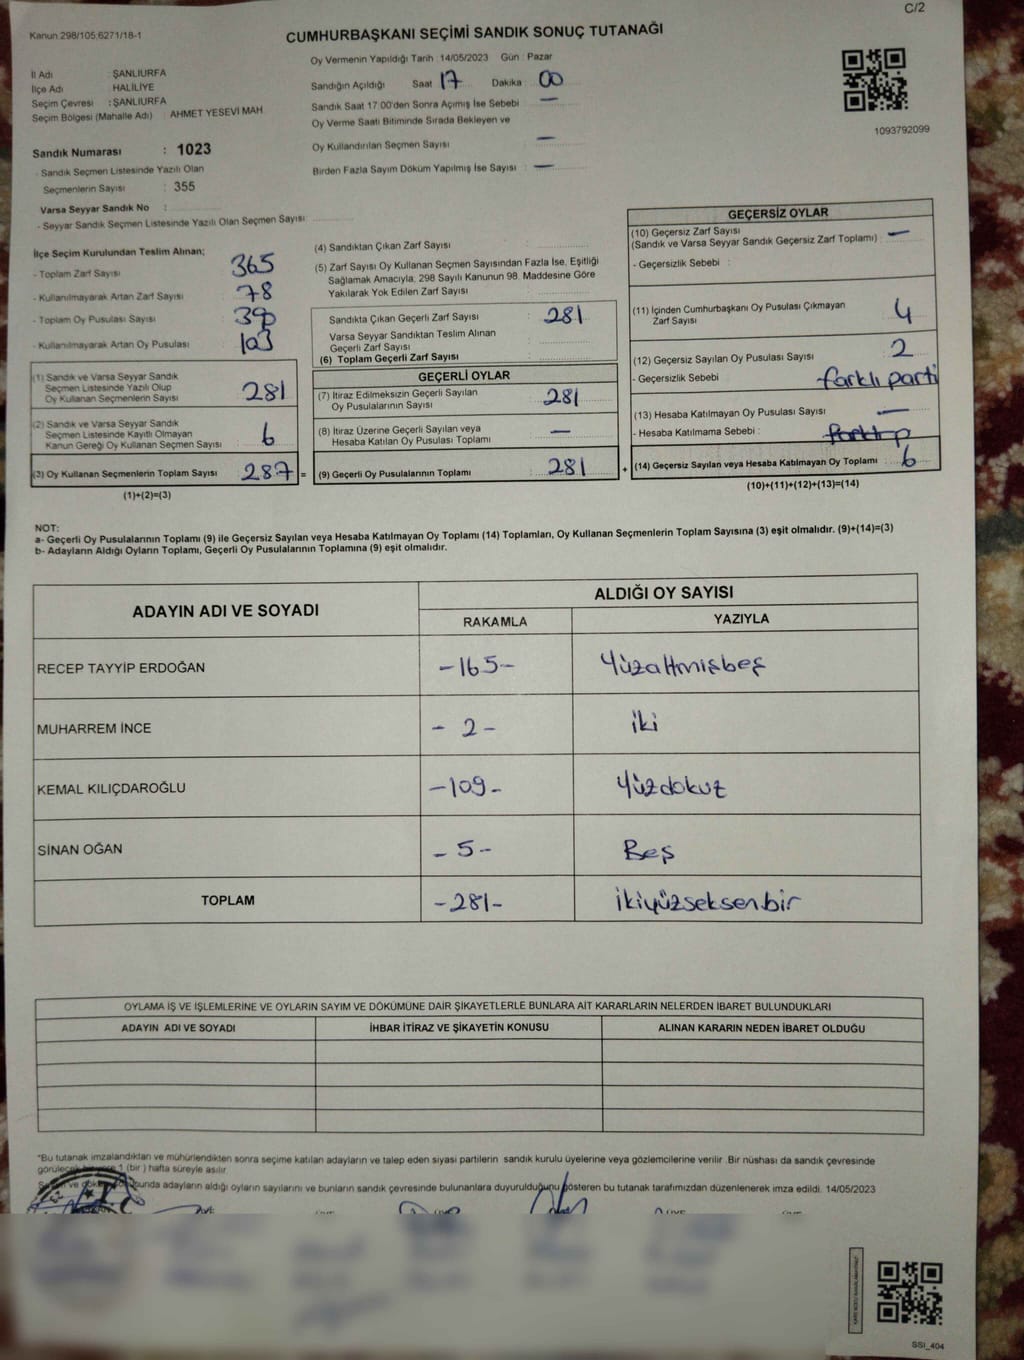 C/2
Kanun 298/105,6271/18-1
CUMHURBAŞKANI SEÇİMİ SANDIK SONUÇ TUTANAĞI
Oy Vermenin Yapıldığı Tarih :14/05/2023 Gün : Pazar
İl Adı : ŞANLIURFA
İlçe Adı : HALİLİYE
Seçim Çevresi : ŞANLIURFA
Seçim Bölgesi (Mahalle Adı) : AHMET YESEVİ MAH
Sandığın Açıldığı Saat 17 Dakika 00
Sandık Saat 17:00'den Sonra Açımış İse Sebebi : —
Oy Verme Saati Bitiminde Sırada Bekleyen ve
Oy Kullandırılan Seçmen Sayısı : —
Birden Fazla Sayım Döküm Yapılmış İse Sayısı : —
1093792099
Sandık Numarası : 1023
- Sandık Seçmen Listesinde Yazılı Olan
Seçmenlerin Sayısı : 355
Varsa Seyyar Sandık No :
- Seyyar Sandık Seçmen Listesinde Yazılı Olan Seçmen Sayısı
İlçe Seçim Kurulundan Teslim Alınan;
- Toplam Zarf Sayısı 365
- Kullanılmayarak Artan Zarf Sayısı : 78
- Toplam Oy Pusulası Sayısı :
- Kullanılmayarak Artan Oy Pusulası : 103
(1) Sandık ve Varsa Seyyar Sandık
Seçmen Listesinde Yazılı Olup
Oy Kullanan Seçmenlerin Sayısı 281
(2) Sandık ve Varsa Seyyar Sandık
Seçmen Listesinde Kayıtlı Olmayan
Kanun Gereği Oy Kullanan Seçmen Sayısı 6
(3) Oy Kullanan Seçmenlerin Toplam Sayısı 287 =
(1)+(2)=(3)
(4) Sandıktan Çıkan Zarf Sayısı :
(5) Zarf Sayısı Oy Kullanan Seçmen Sayısından Fazla İse, Eşitliği
Sağlamak Amacıyla, 298 Sayılı Kanunun 98. Maddesine Göre
Yakılarak Yok Edilen Zarf Sayısı :
Sandıkta Çıkan Geçerli Zarf Sayısı : 281
Varsa Seyyar Sandıktan Teslim Alınan
Geçerli Zarf Sayısı :
(6) Toplam Geçerli Zarf Sayısı :
GEÇERLİ OYLAR
(7) İtiraz Edilmeksizin Geçerli Sayılan
Oy Pusulalarının Sayısı : 281
(8) İtiraz Üzerine Geçerli Sayılan veya
Hesaba Katılan Oy Pusulası Toplamı : —
(9) Geçerli Oy Pusulalarının Toplamı : 281 +
GEÇERSİZ OYLAR
(10) Geçersiz Zarf Sayısı
(Sandık ve Varsa Seyyar Sandık Geçersiz Zarf Toplamı) : —
- Geçersizlik Sebebi :
(11) İçinden Cumhurbaşkanı Oy Pusulası Çıkmayan
Zarf Sayısı : 4
(12) Geçersiz Sayılan Oy Pusulası Sayısı : 2
- Geçersizlik Sebebi : farklı parti
(13) Hesaba Katılmayan Oy Pusulası Sayısı : —
- Hesaba Katılmama Sebebi :
(14) Geçersiz Sayılan veya Hesaba Katılmayan Oy Toplamı : 6
(10)+(11)+(12)+(13)=(14)
NOT:
a- Geçerli Oy Pusulalarının Toplamı (9) ile Geçersiz Sayılan veya Hesaba Katılmayan Oy Toplamı (14) Toplamları, Oy Kullanan Seçmenlerin Toplam Sayısına (3) eşit olmalıdır. (9)+(14)=(3)
b- Adayların Aldığı Oyların Toplamı, Geçerli Oy Pusulalarının Toplamına (9) eşit olmalıdır.
ADAYIN ADI VE SOYADI ALDIĞI OY SAYISI
RAKAMLA YAZIYLA
RECEP TAYYİP ERDOĞAN -165- Yüzaltmişbeş
MUHARREM İNCE - 2 - iki
KEMAL KILIÇDAROĞLU -109- Yüzdokuz
SİNAN OĞAN - 5 - Beş
TOPLAM -281- ikiyüzseksenbir
OYLAMA İŞ VE İŞLEMLERİNE VE OYLARIN SAYIM VE DÖKÜMÜNE DAİR ŞİKAYETLERLE BUNLARA AİT KARARLARIN NELERDEN İBARET BULUNDUKLARI
ADAYIN ADI VE SOYADI İHBAR İTİRAZ VE ŞİKAYETİN KONUSU ALINAN KARARIN NEDEN İBARET OLDUĞU
"Bu tutanak imzalandıktan ve mühürlendikten sonra seçime katılan adayların ve talep eden siyasi partilerin sandık kurulu üyelerine veya gözlemcilerine verilir .Bir nüshası da sandık çevresinde
1 (bir ) hafta süreyle asılır.
adayların aldığı oyların sayılarını ve bunların sandık çevresinde bulunanlara duyurulduğunu gösteren bu tutanak tarafımızdan düzenlenerek imza edildi. 14/05/2023
SSI_404